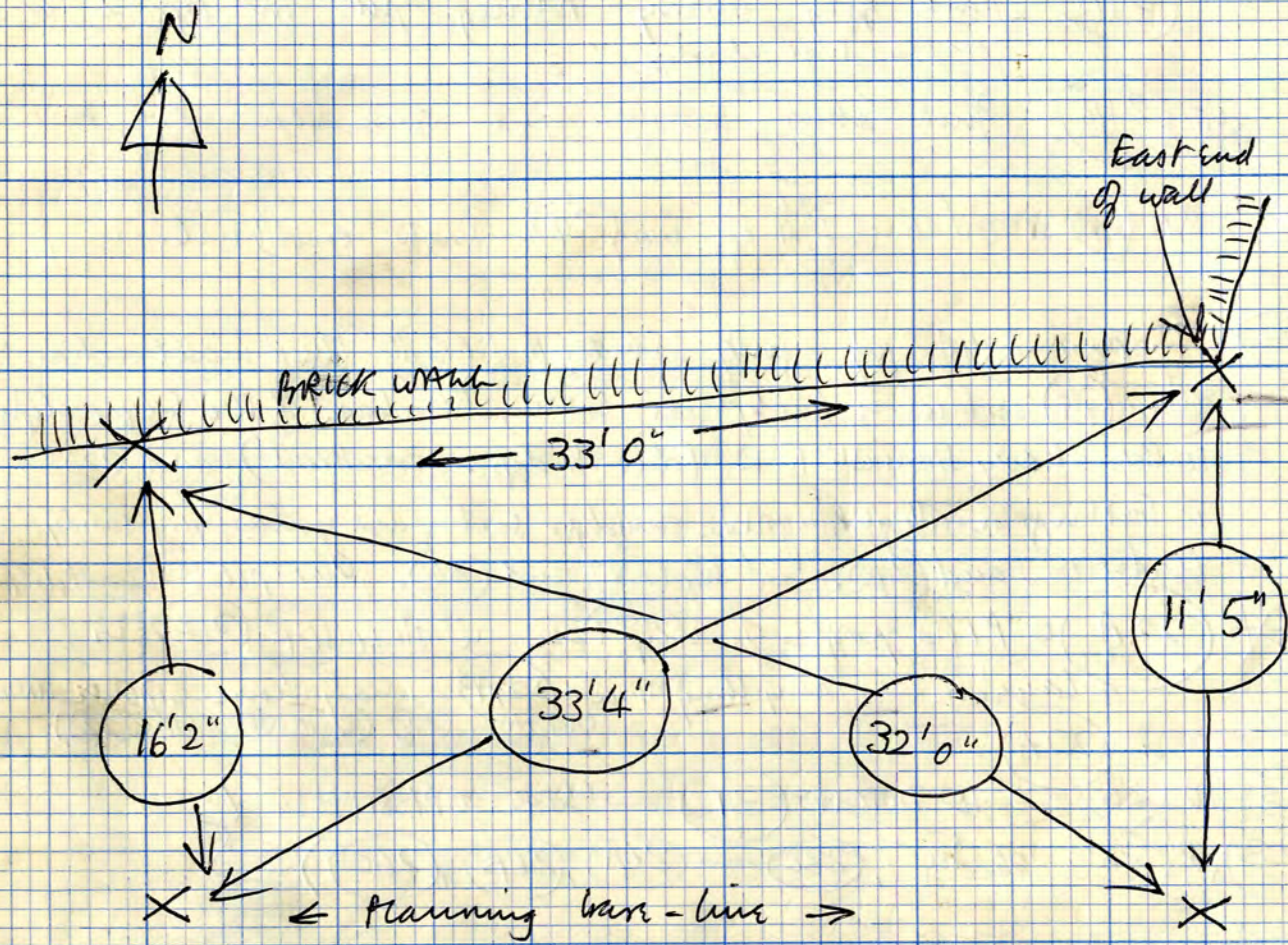 N
East end
of wall
BRICK WALL
33' 0"
11' 5"
33' 4"
16' 2"
32' 0"
← Planning base-line →